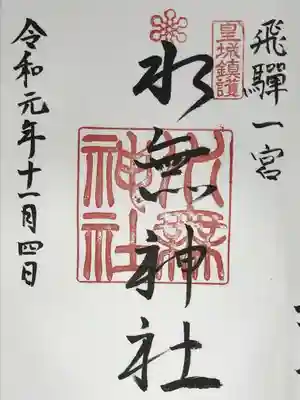 飛驒一宮
皇城鎮護
水無神社
水無神社
令和元年十一月四日